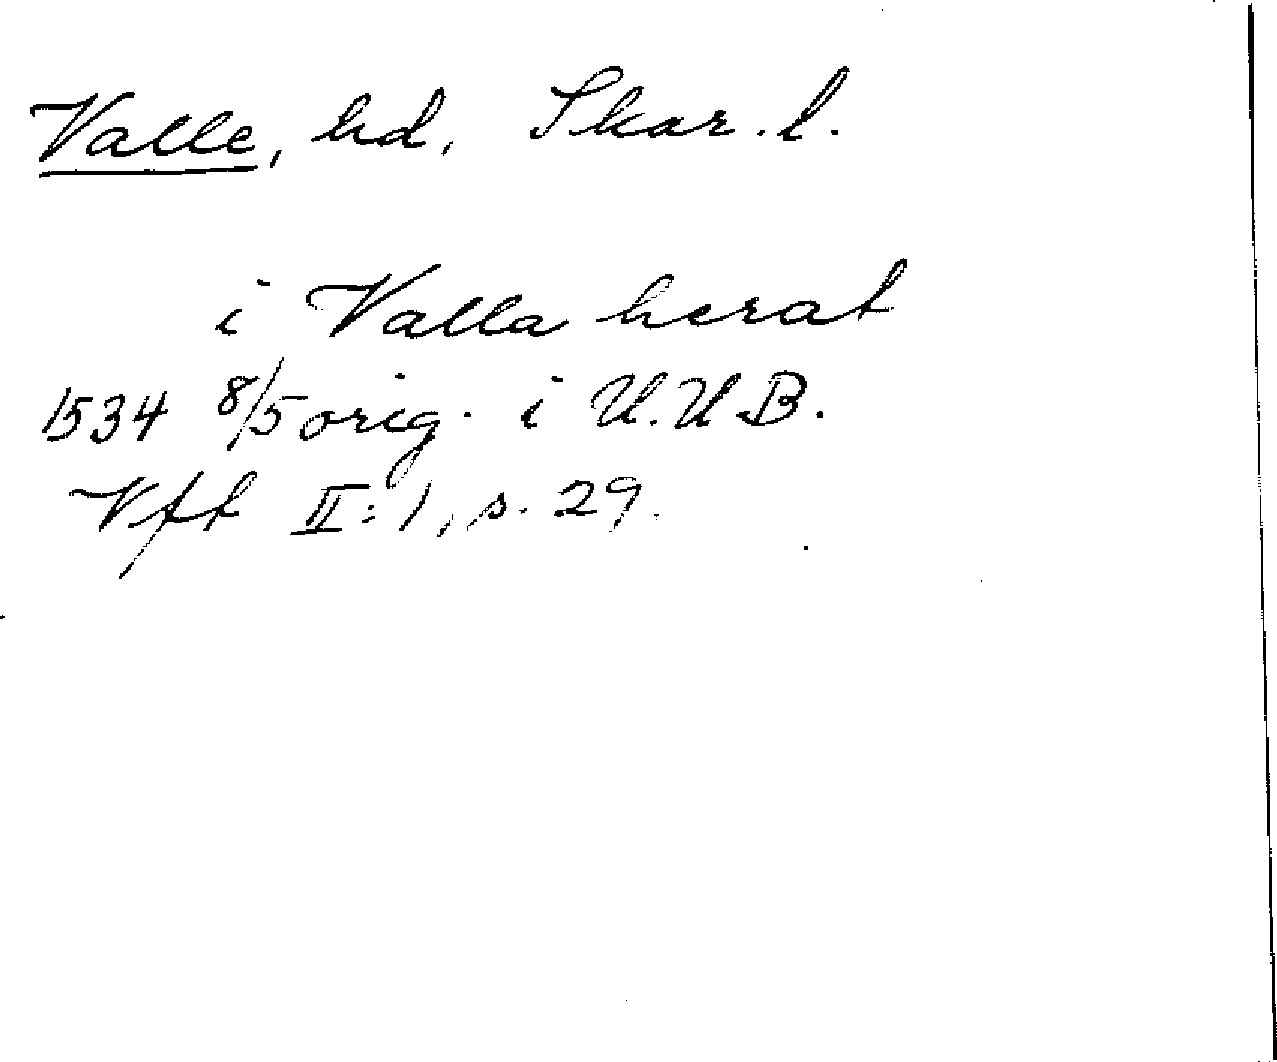 Valle, hd, Skar. l.
i Valla herat
1534 8/5 orig. i U.U.B.
Vff II:1, s. 29.